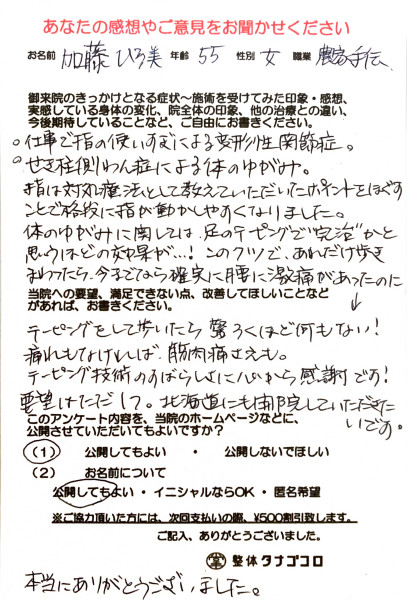 あなたの感想やご意見をお聞かせください
お名前 加藤ひろ美 年齢 55 性別 女 職業 農家手伝い
御来院のきっかけとなる症状~施術を受けてみた印象・感想、
実感している身体の変化、院全体の印象、他の治療との違い、
今後期待していることなど、ご自由にお書きください。
○仕事で指の使いすぎによる変形性関節症。
○せき柱側わん症による体のゆがみ。
指は対処療法として教えていただいたポイントをほぐす
ことで格段に指が動かしやすくなりました。
体のゆがみに関しては、足のテーピングで"完治"かと
思うほどの効果が…!このクツで、あれだけ歩き
まわったら、今までなら確実に腰に激痛があったのに
↓
当院への要望、満足できない点、改善してほしいことなど
があれば、お書きください。
テーピングをして歩いたら驚ろくほど何もない!
痛れもなければ、筋肉痛さえも。
テーピング技術のすばらしさに心から感謝です!
要望はただ1つ。北海道にも開院していただきた
いです。
このアンケート内容を、当院のホームページなどに、
公開させていただいてもよいですか?
(1) 公開してもよい ・ 公開しないでほしい
(2) お名前について
公開してもよい・イニシャルならOK・匿名希望
※ご協力頂いた方には、次回支払いの際、¥500割引致します。
ご記入、ありがとうございました。
整体タナゴコロ
本当にありがとうございました。